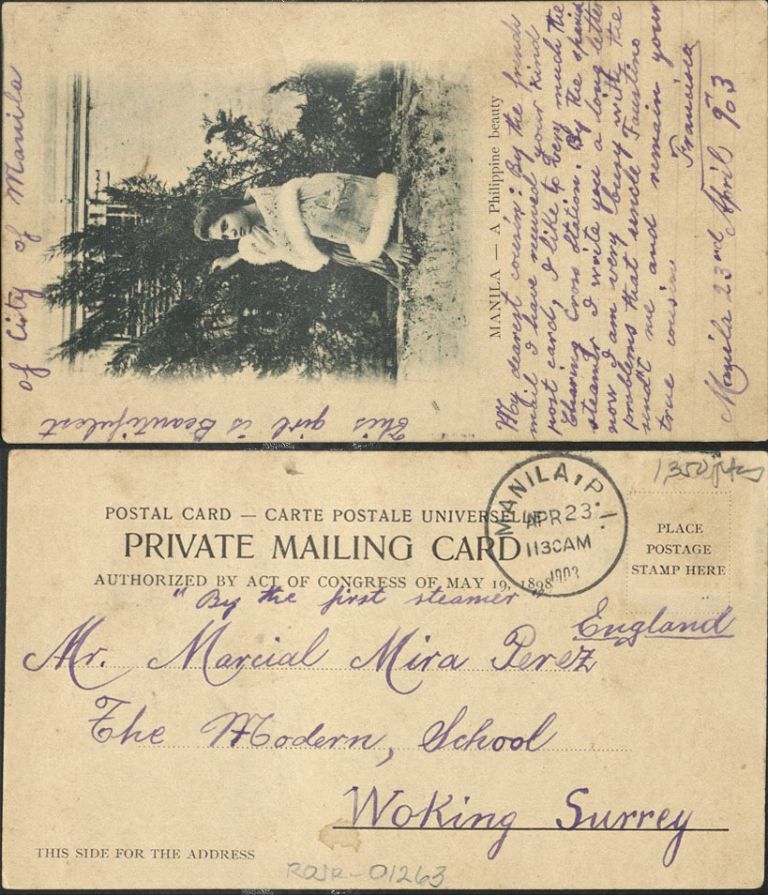 of City of Manila
This girl is Beautifulest
MANILA — A Philippine beauty
My dearest cousin: By the french
mail I have received your kind
post card, I like to very much the
Charing Cross Station. By the spanish
steamer I write you a long letter
now I am very busy with the
problems that uncle Faustino
send't me and remain your
true cousine
Francisca
Manila 23nd April 903
1,350 ptas
POSTAL CARD — CARTE POSTALE UNIVERSELLE
PRIVATE MAILING CARD
AUTHORIZED BY ACT OF CONGRESS OF MAY 19, 1898
MANILA, P.I.
APR 23
1130AM
1903
PLACE
POSTAGE
STAMP HERE
"By the first steamer"
England
Mr. Marcial Mira Perez
The Modern, School
Woking Surrey
THIS SIDE FOR THE ADDRESS
ROJR-01263